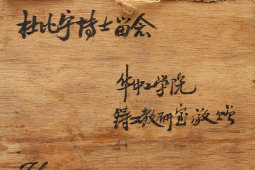 杜比宇博士留念
华中工学院
铸工教研室敬赠